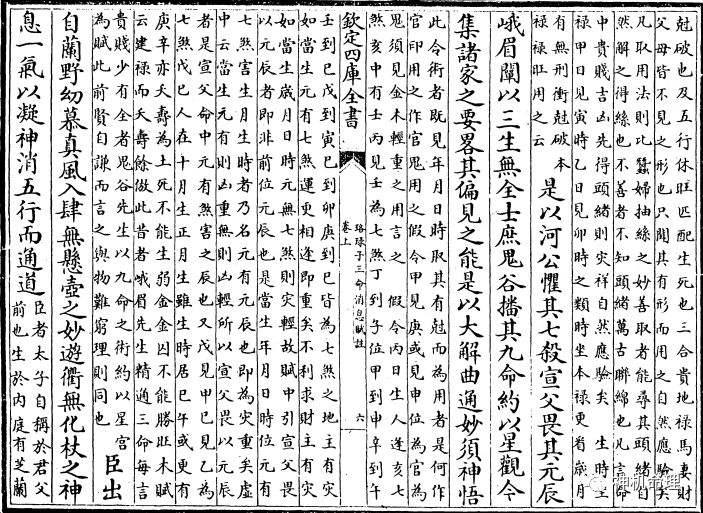 尅破也及五行休旺匹配生死也三合貴地祿馬妻財
父母皆不見之形也只聞其有形而用之自然應驗矣
凡取用法則比蠶婦抽絲之妙善取者能尋其頭緒自
然解之得絲也不善者不知頭緒萬古聯綿也凡言命
中貴賤吉凶先得頭緒則災祥自然應驗矣 生時坐
祿甲日見寅時乙日見卯時之類時坐本祿更看歲月
有無刑衝尅破本
祿祿旺用之云
是以河公懼其七殺宣父畏其元辰
峨眉闡以三生無全士庶鬼谷播其九命約以星觀今
集諸家之要畧其偏見之能是以大解曲通妙須神悟
此命術者既見年月日時取其有尅而為用者是何作
官印用之作官鬼用之假令甲見庚或見申位為官為
鬼須見金木輕重之用言之 假令丙日生人逢亥七
煞亥中有壬丙見壬為七煞丁到子位甲到申辛到午
欽定四庫全書
珞琭子三命消息賦註
卷上
六
壬到巳戊到寅己到卯庚到巳皆為七煞之地主有災
如當生元有七煞運更相逢即重矣不利求財主有災
如當生歲月日時元無七煞則災輕故賦中引宣父畏
以元辰者即非前位元辰也是當生年月日時位元有
七煞害生月生時者乃名元有元辰也即為災重矣虛
中云當生元有則凶重無則凶輕所以宣父畏以元辰
者是宣父命中元有煞害之辰也又戊見甲己見乙為
七煞戊己人在十月生正月生雖生時居巳午或更有
庚辛亦夭壽為土死不能生弱金金囚不能勝旺木賦
云建祿而夭壽餘倣此昔者峨眉先生精通三命每言
貴賤少有全者鬼谷先生以九命之術約以星宮
為賦此前賢自謙而言之與物難窮理則同也
臣出
自蘭野幼慕真風入肆無懸壺之妙遊衢無化杖之神
息一氣以凝神消五行而通道
臣者太子自稱於君父
前也生於內庭有芝蘭
神机命理